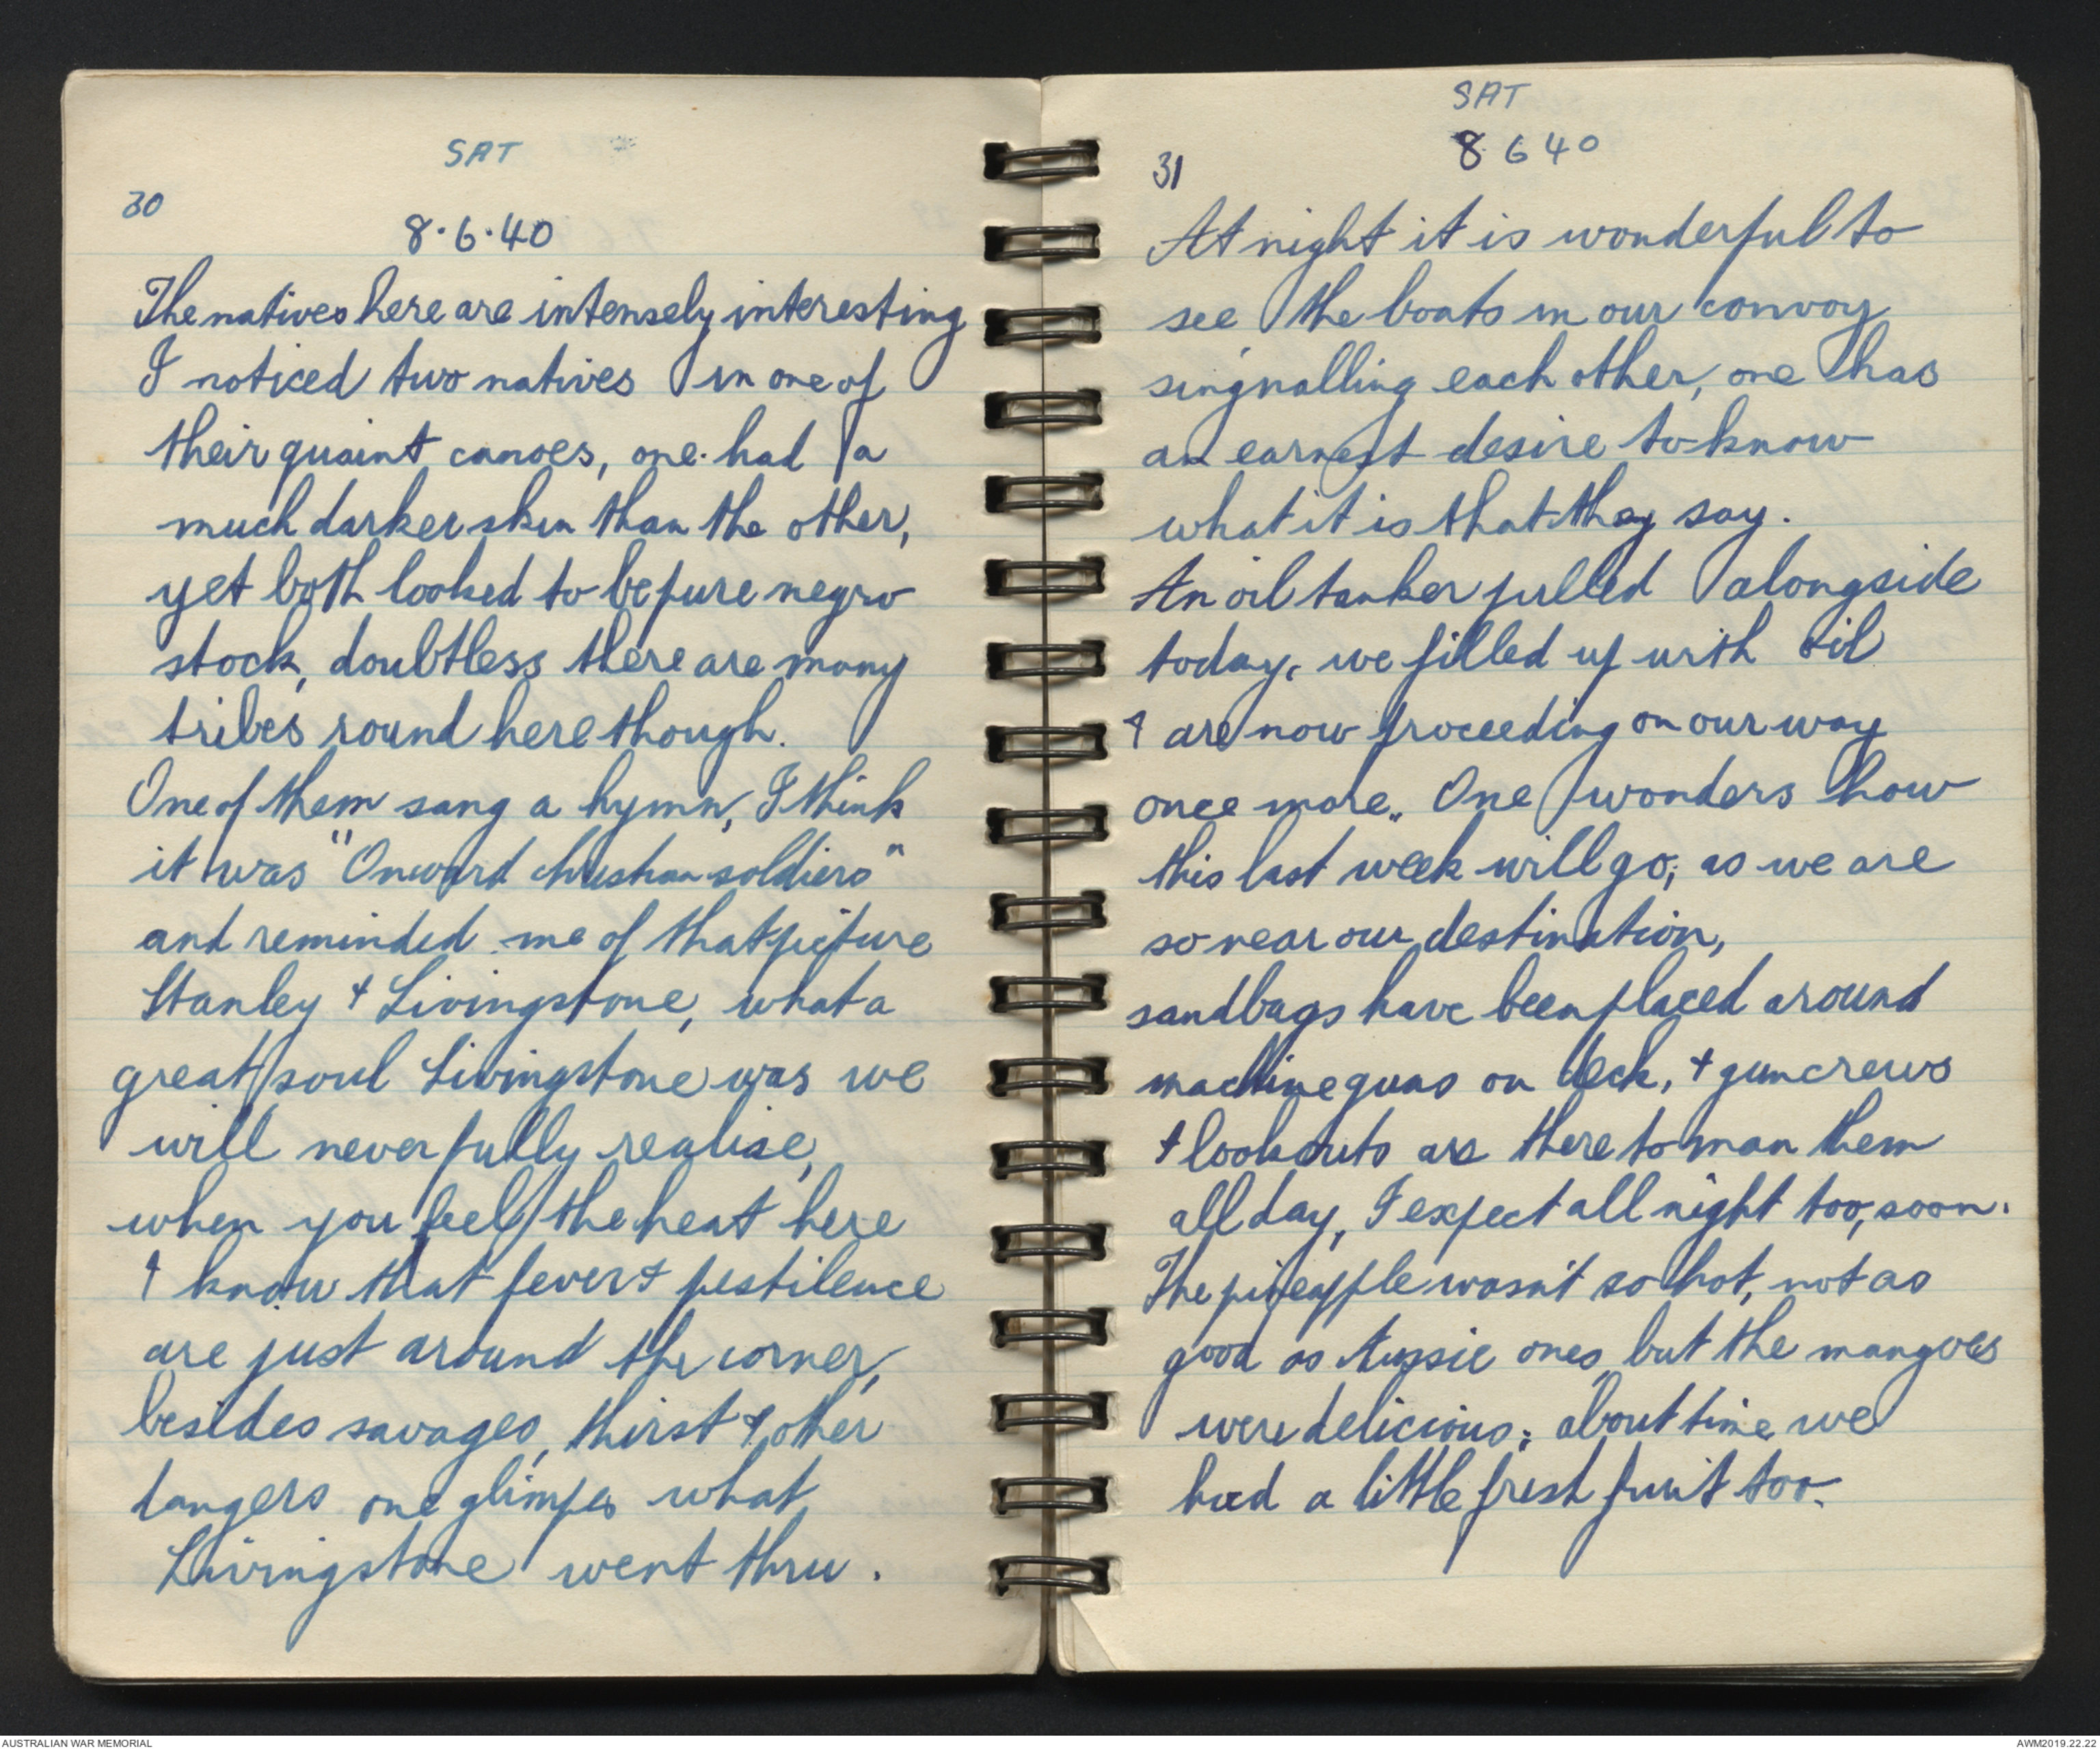 SAT
30
8.6.40
The natives here are intensely interesting
I noticed two natives in one of
their quaint canoes, one had a
much darker skin than the other,
yet both looked to be pure negro
stock, doubtless there are many
tribes round here though.
One of them sang a hymn, I think
it was "Onward christian soldiers"
and reminded me of that picture
Stanley + Livingstone, what a
great soul Livingstone was we
will never fully realise,
when you feel the heat here
+ know that fever + pestilence
are just around the corner,
besides savages, thirst + other
dangers one glimpes what
Livingstone went thru.
SAT
31
8 6 40
At night it is wonderful to
see the boats in our convoy
singnalling each other, one has
an earnest desire to know
what it is that they say.
An oil tanker pulled alongside
today, we filled up with oil
+ are now proceeding on our way
once more.. One wonders how
this last week will go; as we are
so near our destination,
sandbags have been placed around
machine guns on deck, + gun crews
+ lookouts are there to man them
all day, I expect all night too, soon.
The pineapple wasn't so hot, not as
good as Aussie ones, but the mangoes
were delicious; about time we
had a little fresh fruit too.
AUSTRALIAN WAR MEMORIAL
AWM2019.22.22